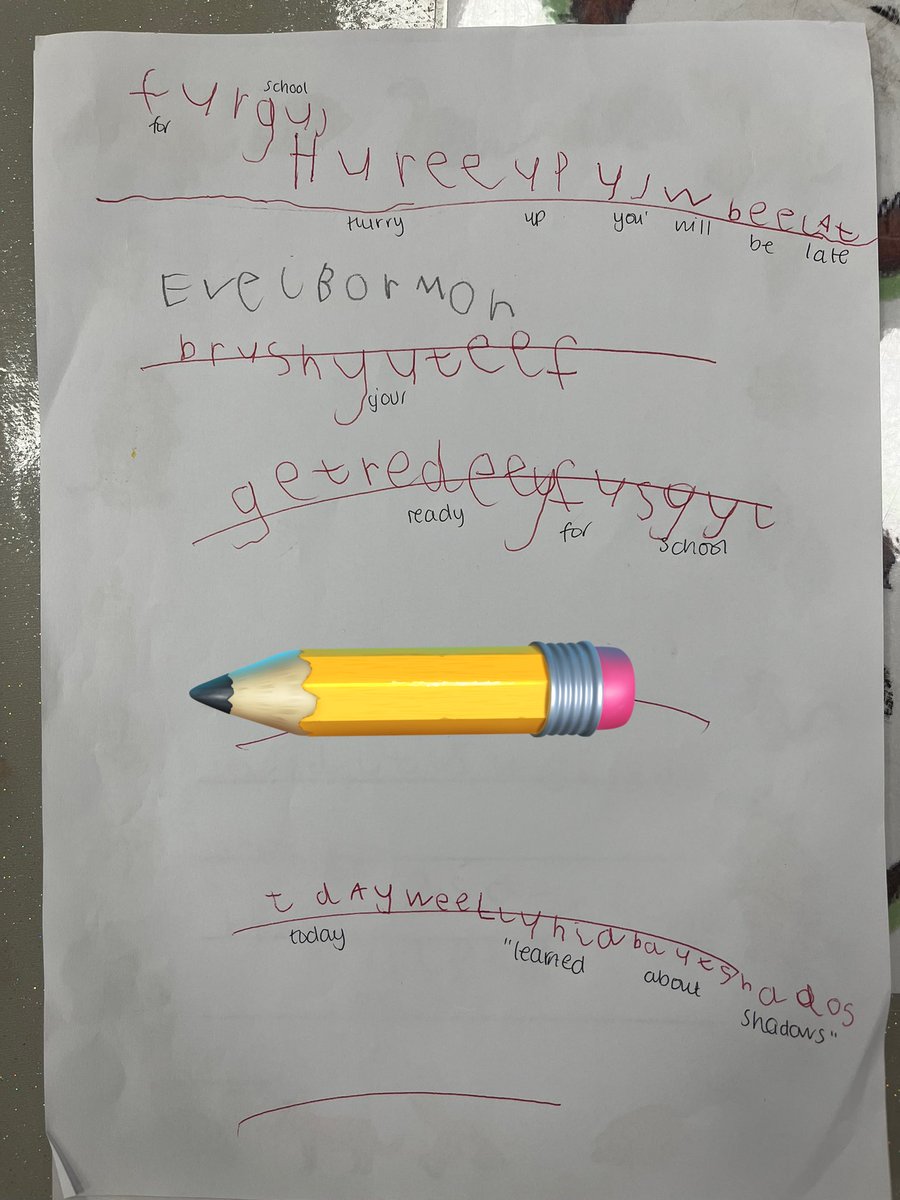 school
furgus
for
Hureeyp yjw beelAt
Hurry up you' will be late
EveiBorMon
brushyuteef
your
getredeeyfusgyt
ready for school
tdAyweeLtyhidbaytshados
today "learned about shadows"